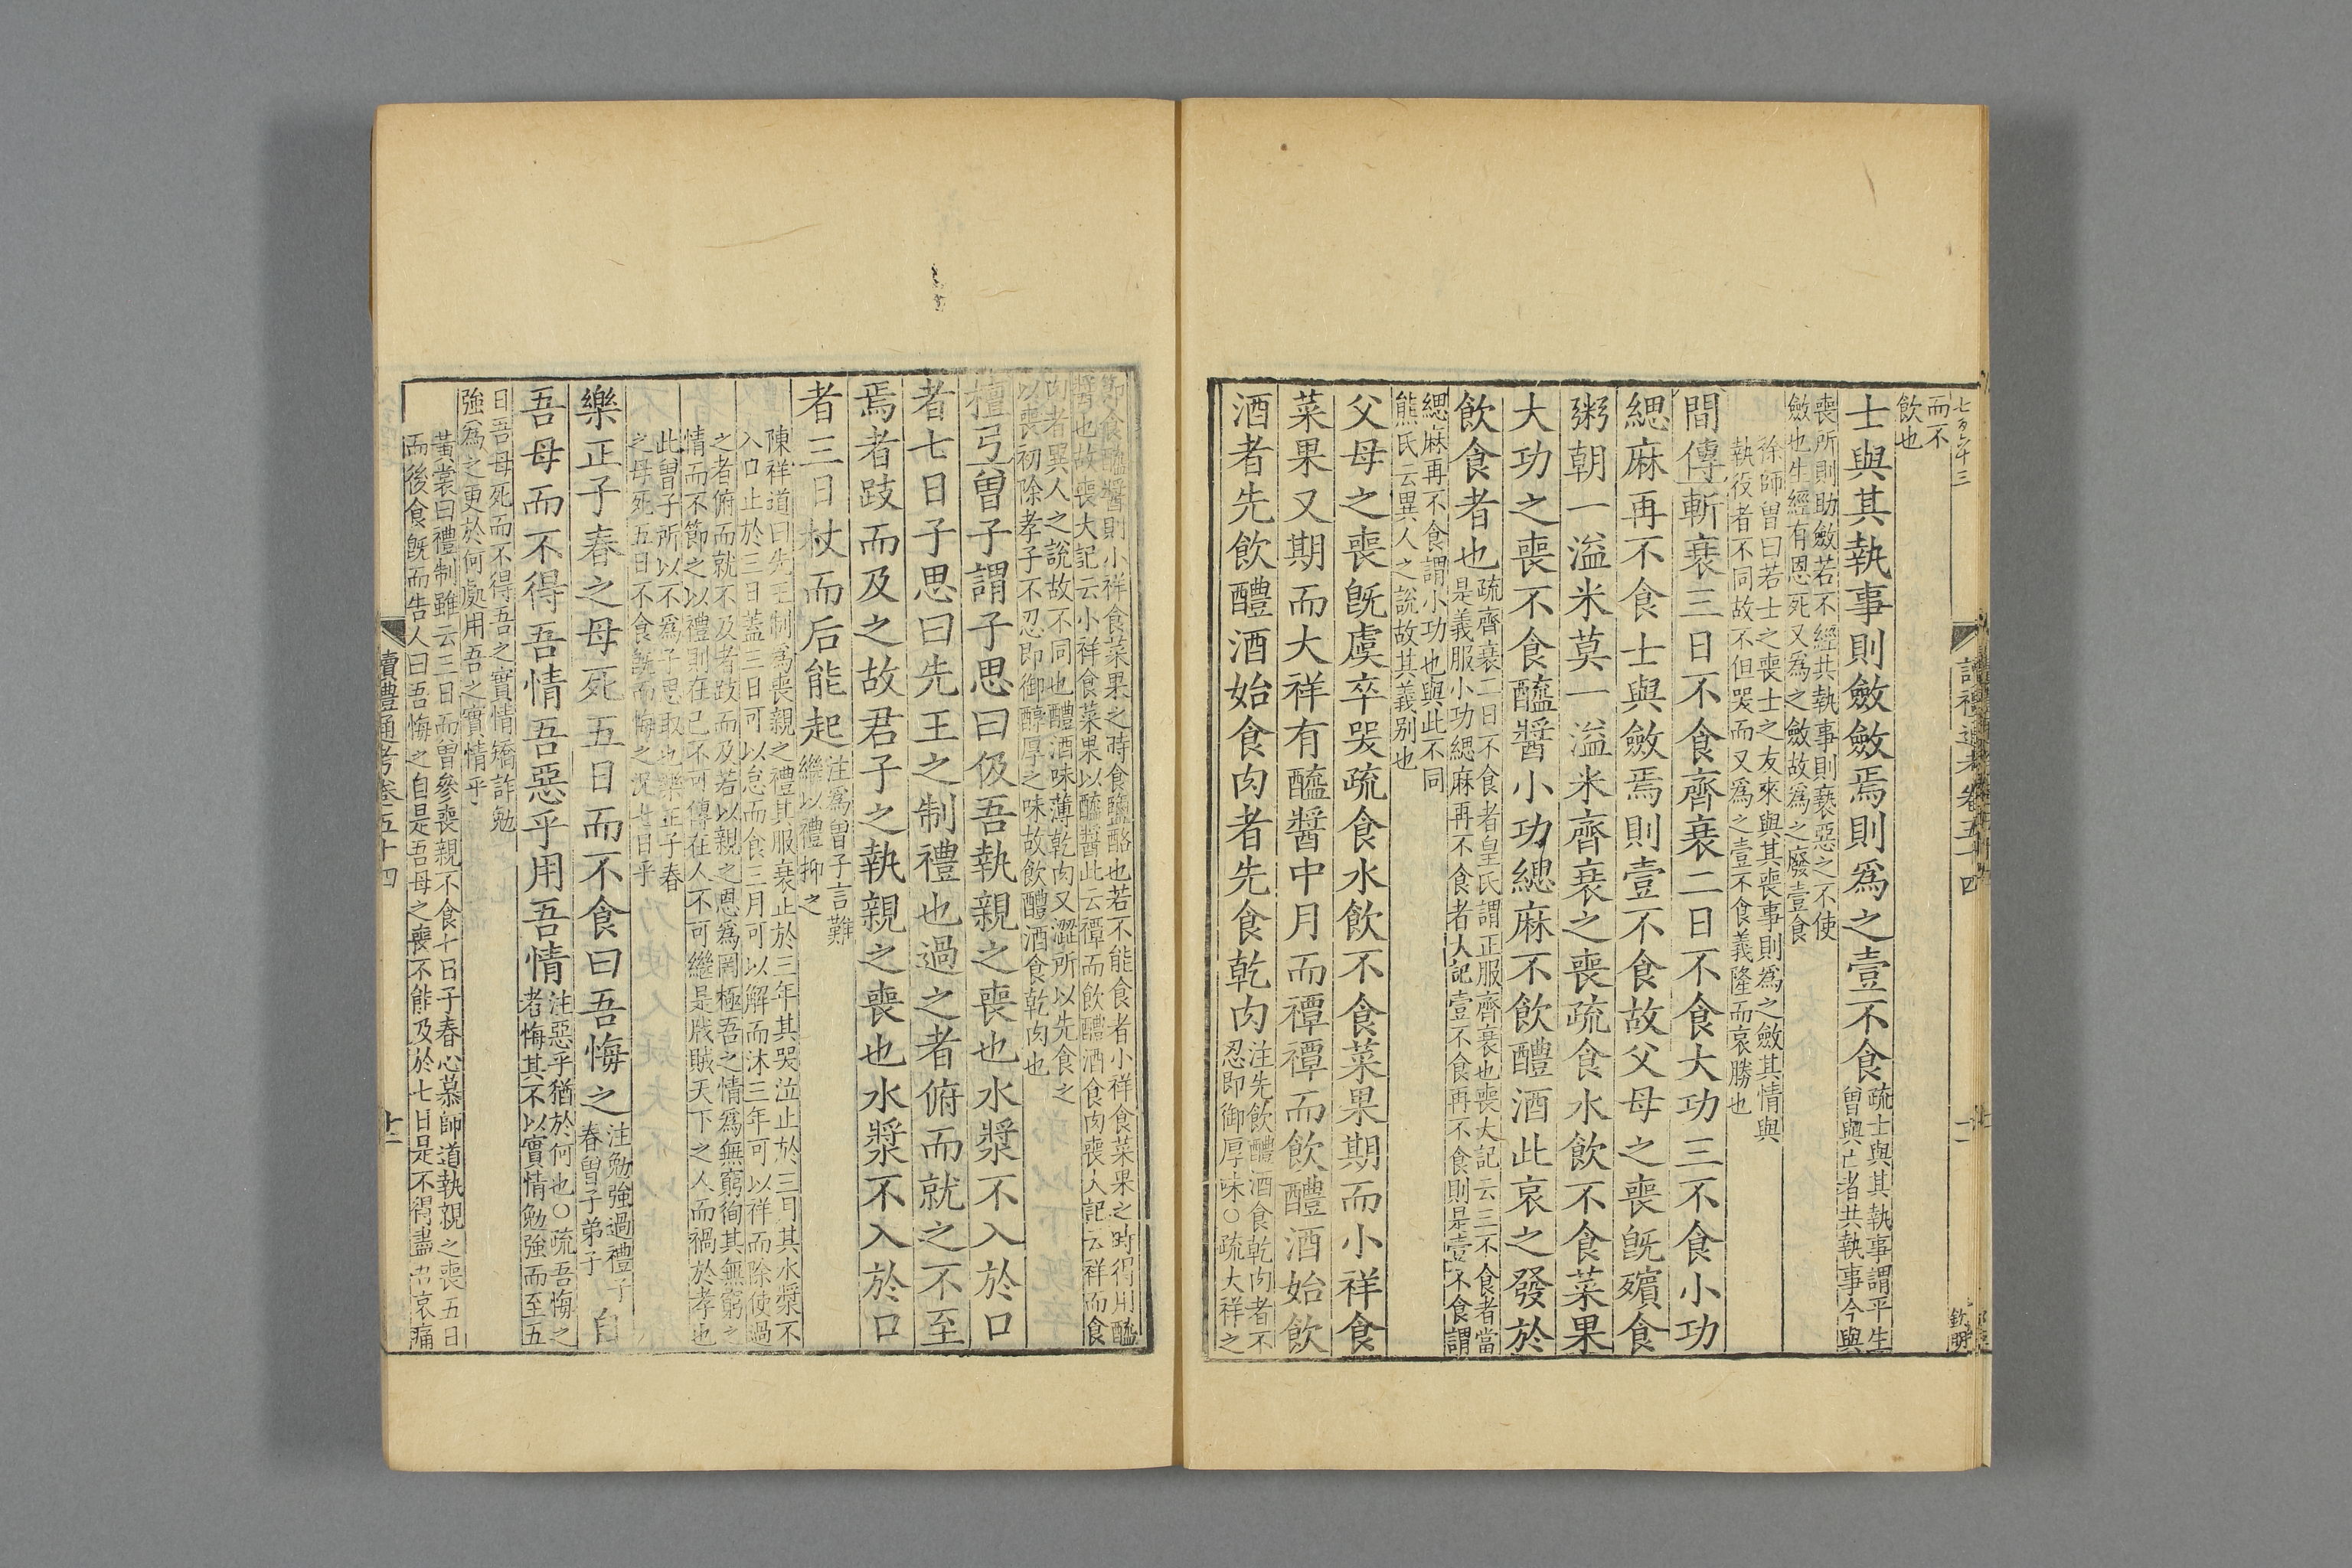 七百六十三
讀禮通考卷五十四
十一
欽明
而不
飲也
士與其執事則斂斂焉則爲之壹不食
疏士與其執事謂平生
曾與亡者共執事今與
喪所則助斂若不經共執事則褻惡之不使
斂也生經有恩死又爲之斂故爲之廢壹食
徐師曾曰若士之喪士之友來與其喪事則爲之斂其情與
執役者不同故不但哭而又爲之壹不食義隆而哀勝也
間傳斬衰三日不食齊衰二日不食大功三不食小功
緦麻再不食士與斂焉則壹不食故父母之喪旣殯食
粥朝一溢米莫一溢米齊衰之喪疏食水飲不食菜果
大功之喪不食醯醬小功緦麻不飲醴酒此哀之發於
飲食者也
疏齊衰二日不食者皇氏謂正服齊衰也喪大記云三不食者當
是義服小功緦麻再不食者大記壹不食再不食則是壹不食謂
緦麻再不食謂小功也與此不同
熊氏云異人之說故其義别也
父母之喪旣虞卒哭疏食水飲不食菜果期而小祥食
菜果又期而大祥有醯醬中月而禫禫而飲醴酒始飲
酒者先飲醴酒始食肉者先食乾肉
注先飲醴酒食乾肉者不
忍即御厚味○疏大祥之
節食醯醬則小祥食菜果之時食鹽酪也若不能食者小祥食菜果之時得用醯
醬也故喪大記云小祥食菜果以醯醬此云禫而飲醴酒食肉喪大記云祥而食
肉者異人之說故不同也醴酒味薄乾肉又澀所以先食之
以喪初除孝子不忍即御醇厚之味故飲醴酒食乾肉也
檀弓曾子謂子思曰伋吾執親之喪也水漿不入於口
者七日子思曰先王之制禮也過之者俯而就之不至
焉者跂而及之故君子之執親之喪也水漿不入於口
者三日杖而后能起
注爲曾子言難
繼以禮抑之
陳祥道曰先王制爲喪親之禮其服衰止於三年其哭泣止於三月其水漿不
入口止於三日蓋三日可以怠而食三月可以解而沐三年可以祥而除使過
之者俯而就不及者跂而及若以親之恩爲罔極吾之情爲無窮徇其無窮之
情而不節之以禮則在已不可傳在人不可繼是戕賊天下之人而禍於孝也
此曾子所以不爲子思取也樂正子春
之母死五日不食旣而悔之况七日乎
樂正子春之母死五日而不食曰吾悔之
注勉強過禮子
春曾子弟子
自
吾母而不得吾情吾惡乎用吾情
注惡乎猶於何也○疏吾悔之
者悔其不以實情勉強而至五
日吾母死而不得吾之實情矯詐勉
強爲之更於何處用吾之實情乎
黃裳曰禮制雖云三日而曾參喪親不食七日子春心慕師道執親之喪五日
而後食旣而告人曰吾悔之自是吾母之喪不能及於七日是不得盡吾哀痛
讀禮通考卷五十四
十二